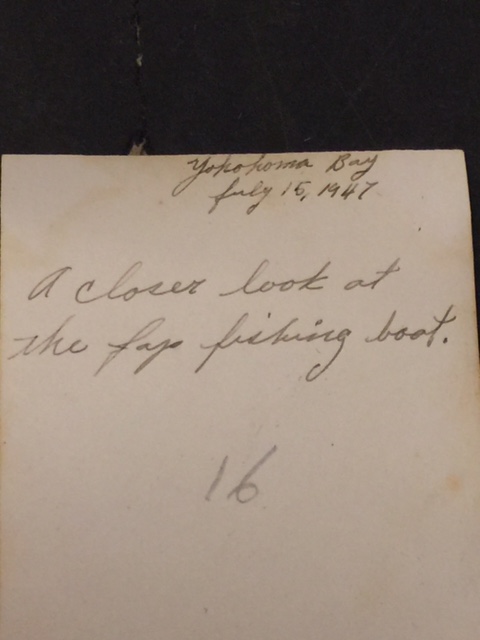 Yokohoma Bay
July 15, 1947
A closer look at
the Jap fishing boat.
16